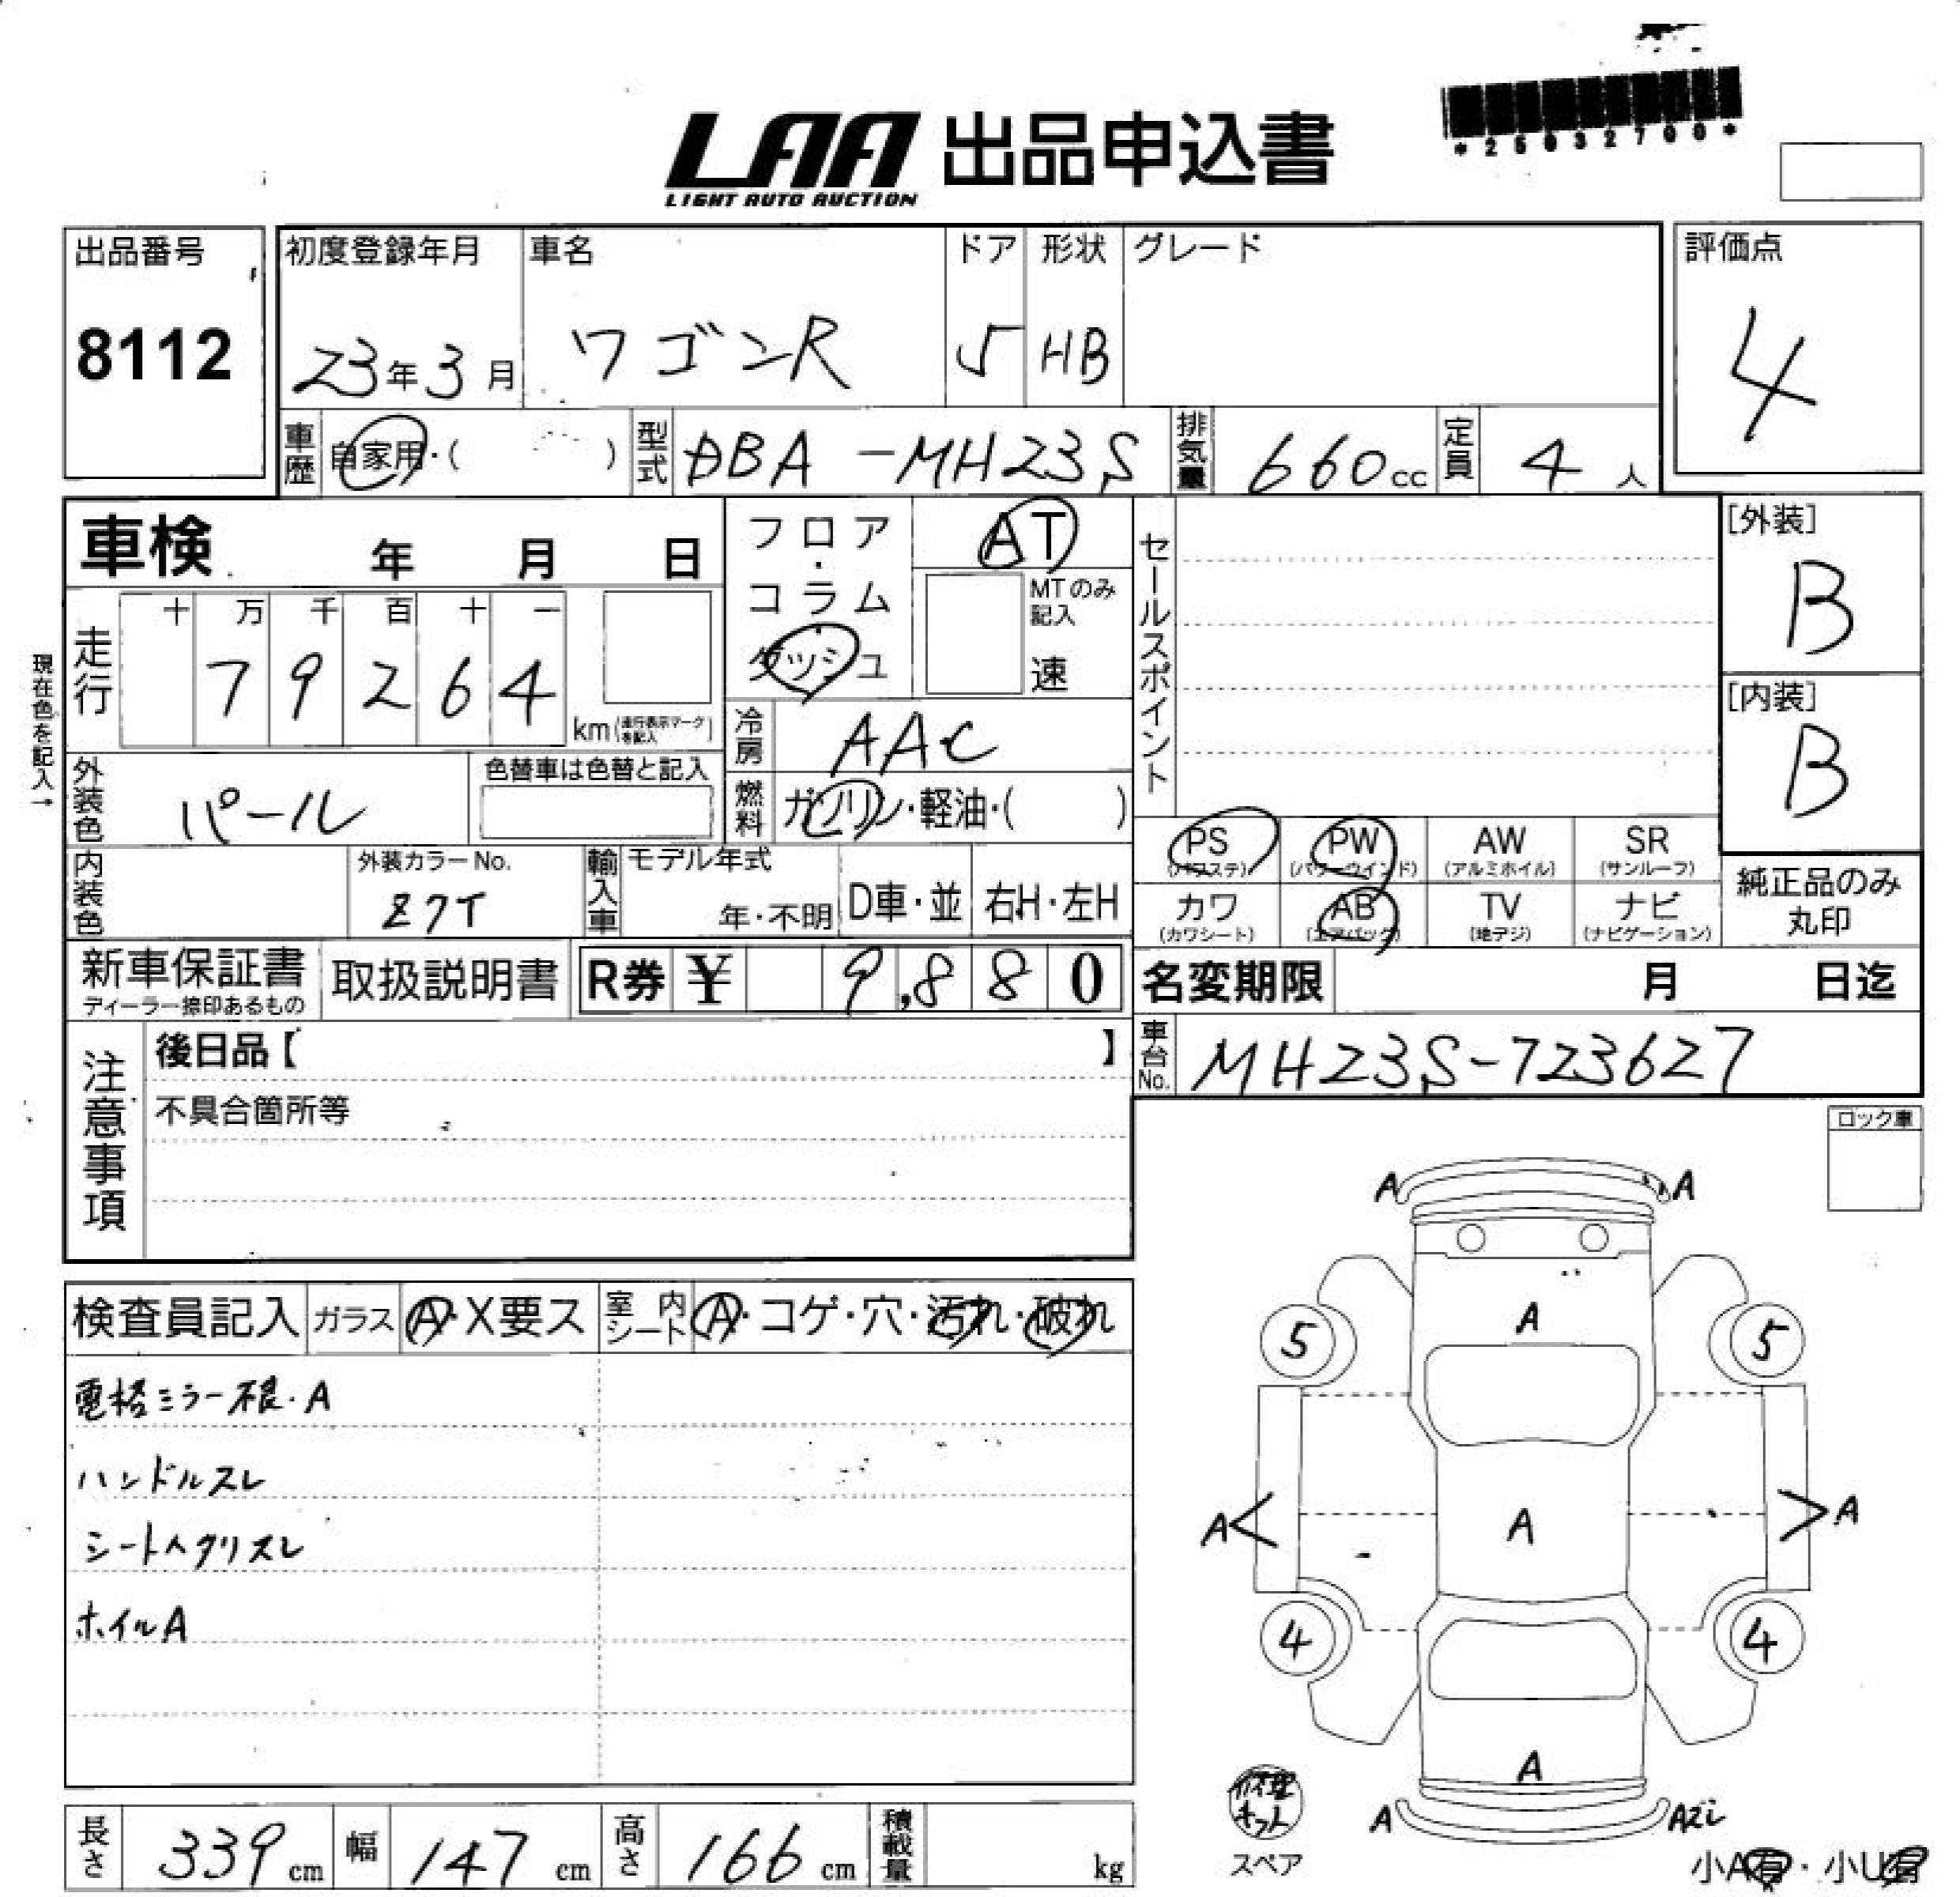 *25032700*
LAA 出品申込書
LIGHT AUTO AUCTION
出品番号
8112
初度登録年月
23年3月
車名
ワゴンR
ドア
5
形状
HB
グレード
評価点
4
車歴
自家用・( )
型式
DBA-MH23S
排気量
660cc
定員
4人
車検 年 月 日
フロア・コラム・ダッシュ
AT
MTのみ記入
速
セールスポイント
[外装]
B
[内装]
B
現在色を記入→
走行
十 万 千 百 十 一
7 9 2 6 4
km(走行表示マークを記入)
冷房
AAC
燃料
ガソリン・軽油・( )
外装色
パール
色替車は色替と記入
内装色
外装カラーNo.
Z7T
輸入車
モデル年式
年・不明
D車・並
右H・左H
PS (パワステ)
PW (パワーウインド)
AW (アルミホイル)
SR (サンルーフ)
カワ (カワシート)
AB (エアバック)
TV (地デジ)
ナビ (ナビゲーション)
純正品のみ
丸印
新車保証書
ディーラー捺印あるもの
取扱説明書
R券 ¥ 9,880
名変期限 月 日迄
車台No.
MH23S-723627
注意事項
後日品【 】
不具合箇所等
ロック車
検査員記入
ガラス
A・X要ス
室内シート
A・コゲ・穴・汚れ・破れ
電格ミラー不良・A
ハンドルスレ
シートヘタリスレ
ホイルA
A A
A
5 5
A< A >A
4 4
A
A Aズレ
修理キット
スペア
小A有・小U有
長さ
339cm
幅
147cm
高さ
166cm
積載量
kg